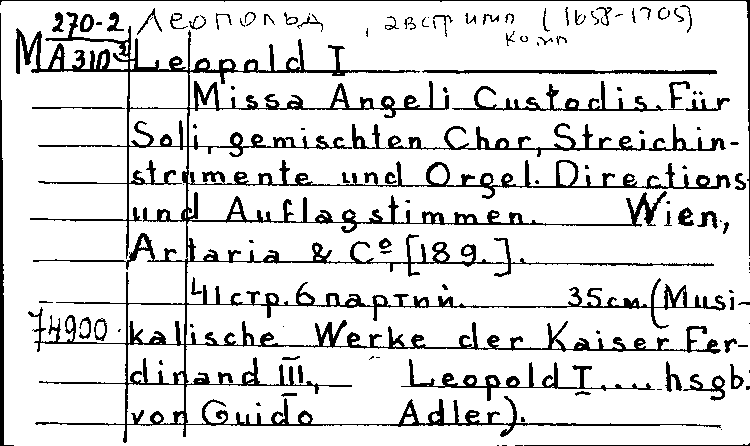 270-2 Леопольд, австр имп (1658-1705)
комп
МА 310³ Leopold I
Missa Angeli Custodis. Für
Soli, gemischten Chor, Streichin-
strumente und Orgel. Directions
und Auflagstimmen. Wien,
Artaria & Cº, [189.].
41 стр. 6 партий. 35 см. (Musi-
74900 kalische Werke der Kaiser Fer-
dinand III., Leopold I.... hsgb.
von Guido Adler).